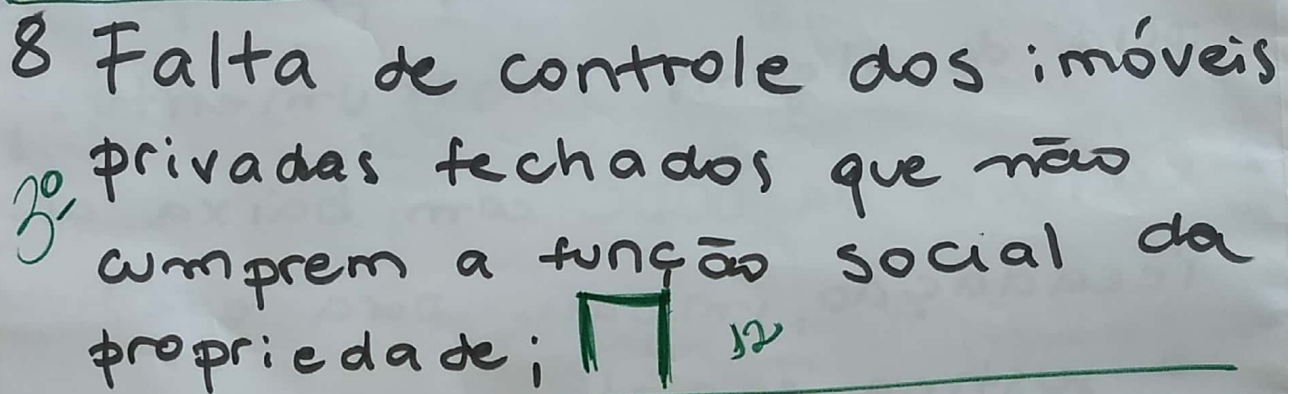 8 Falta de controle dos imóveis
privadas fechados que não
3º cumprem a função social da
propriedade; 12